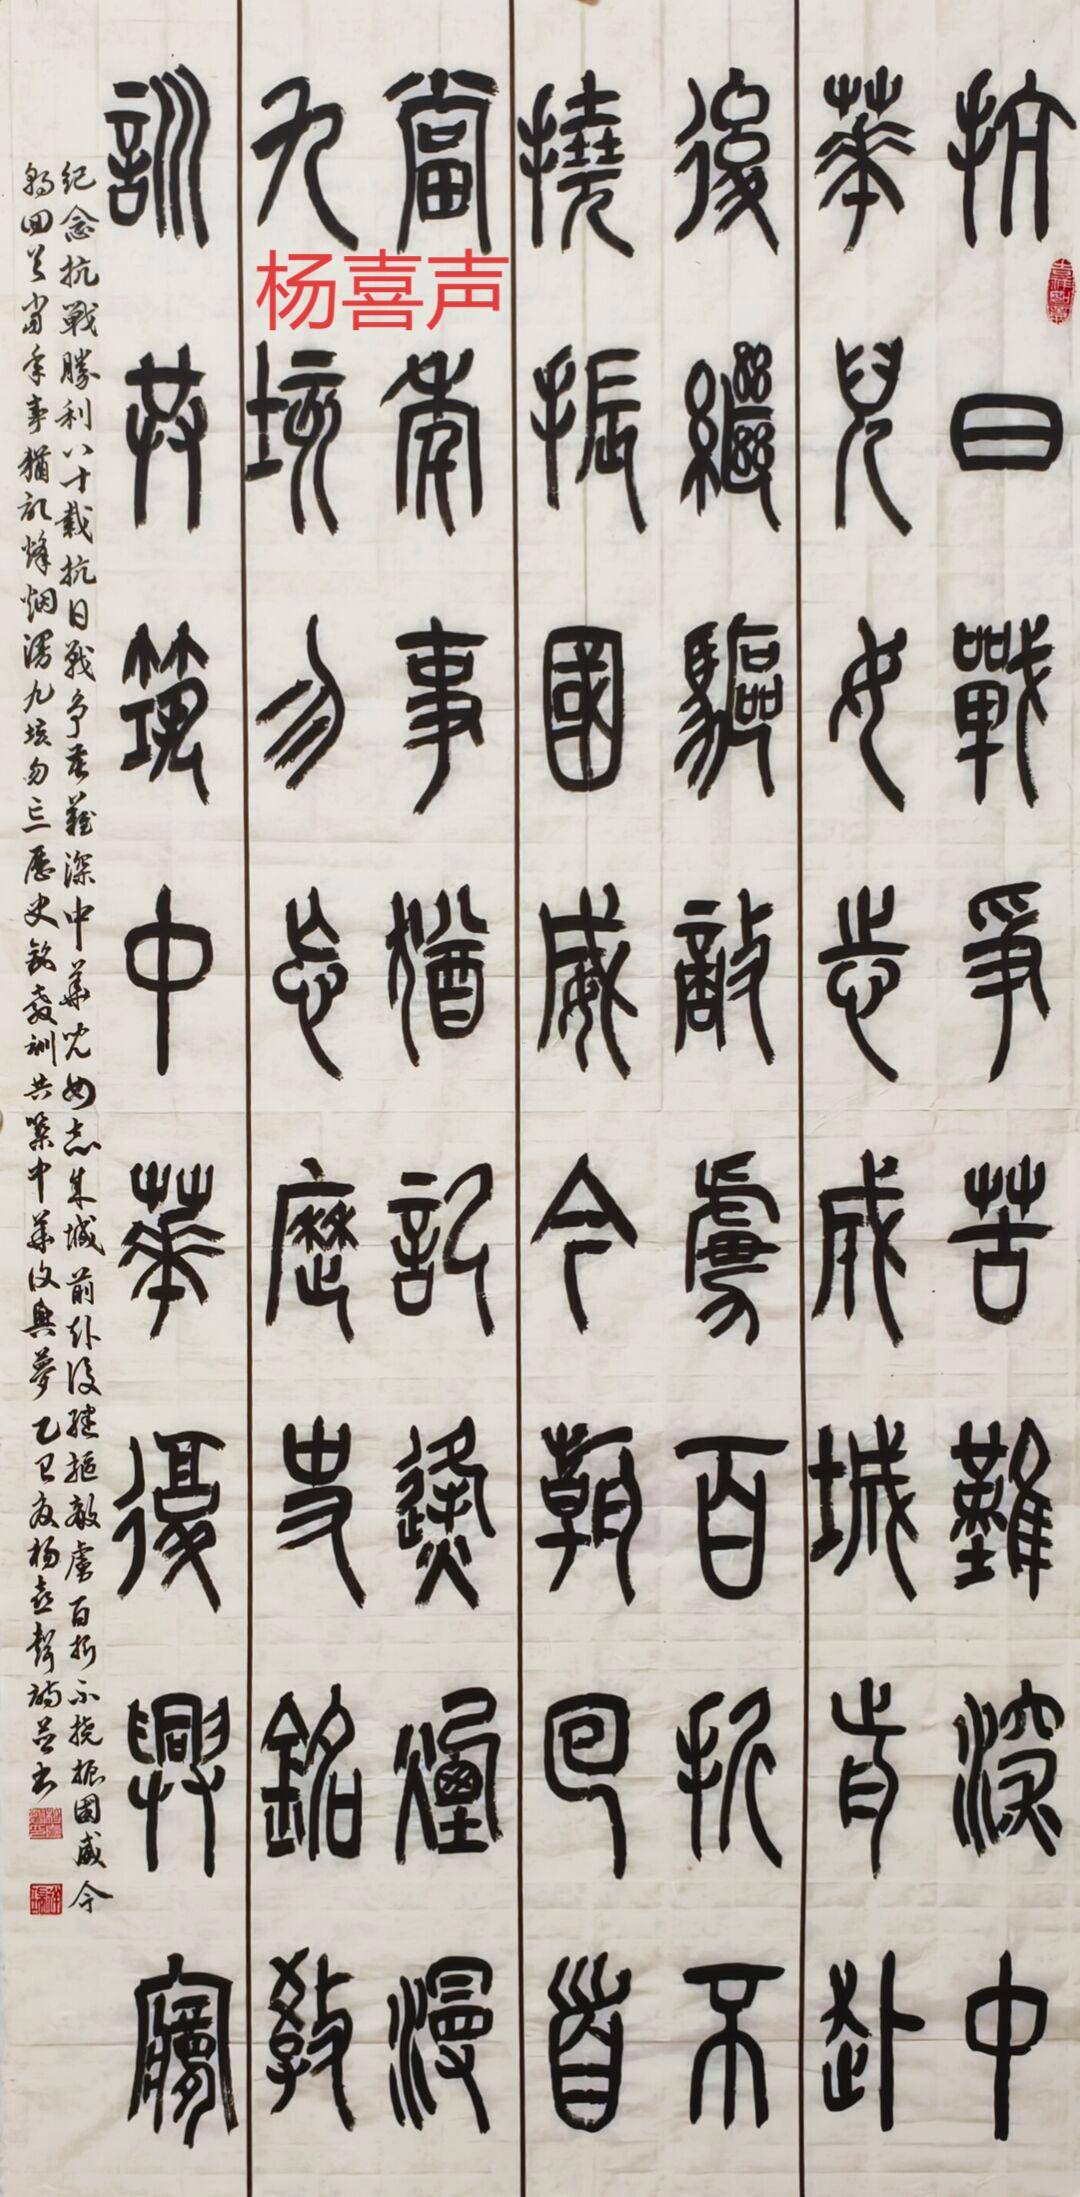 抗日戰爭苦難深中
華兒女志成城前赴
後繼驅敵虜百折不
撓振國威今朝回首
當年事猶記烽煙漫
九垓勿忘歷史銘教
訓共築中華復興夢
紀念抗戰勝利八十載抗日戰爭苦難深中華兒女志成城前赴後繼驅敵虜百折不撓振國威今
朝回首當年事猶記烽烟漫九垓勿忘歷史銘教訓共築中華復興夢乙巳夏楊喜聲詩并書
杨喜声